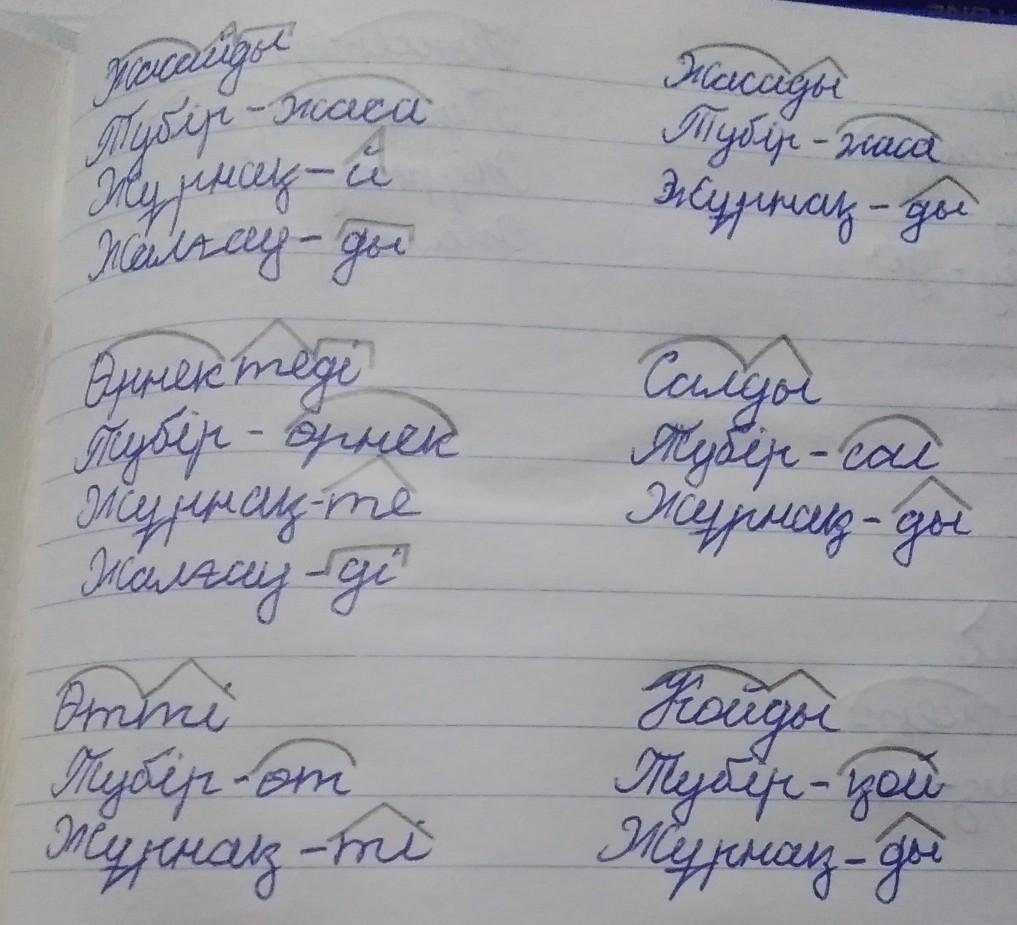 Жасайды
Түбір - жаса
Жұрнақ - й
Жалғау - ды
Өрнектеді
Түбір - өрнек
Жұрнақ - те
Жалғау - ді
Өтті
Түбір - өт
Жұрнақ - ті
Жасады
Түбір - жаса
Жұрнақ - ды
Салды
Түбір - сал
Жұрнақ - ды
Қойды
Түбір - қой
Жұрнақ - ды